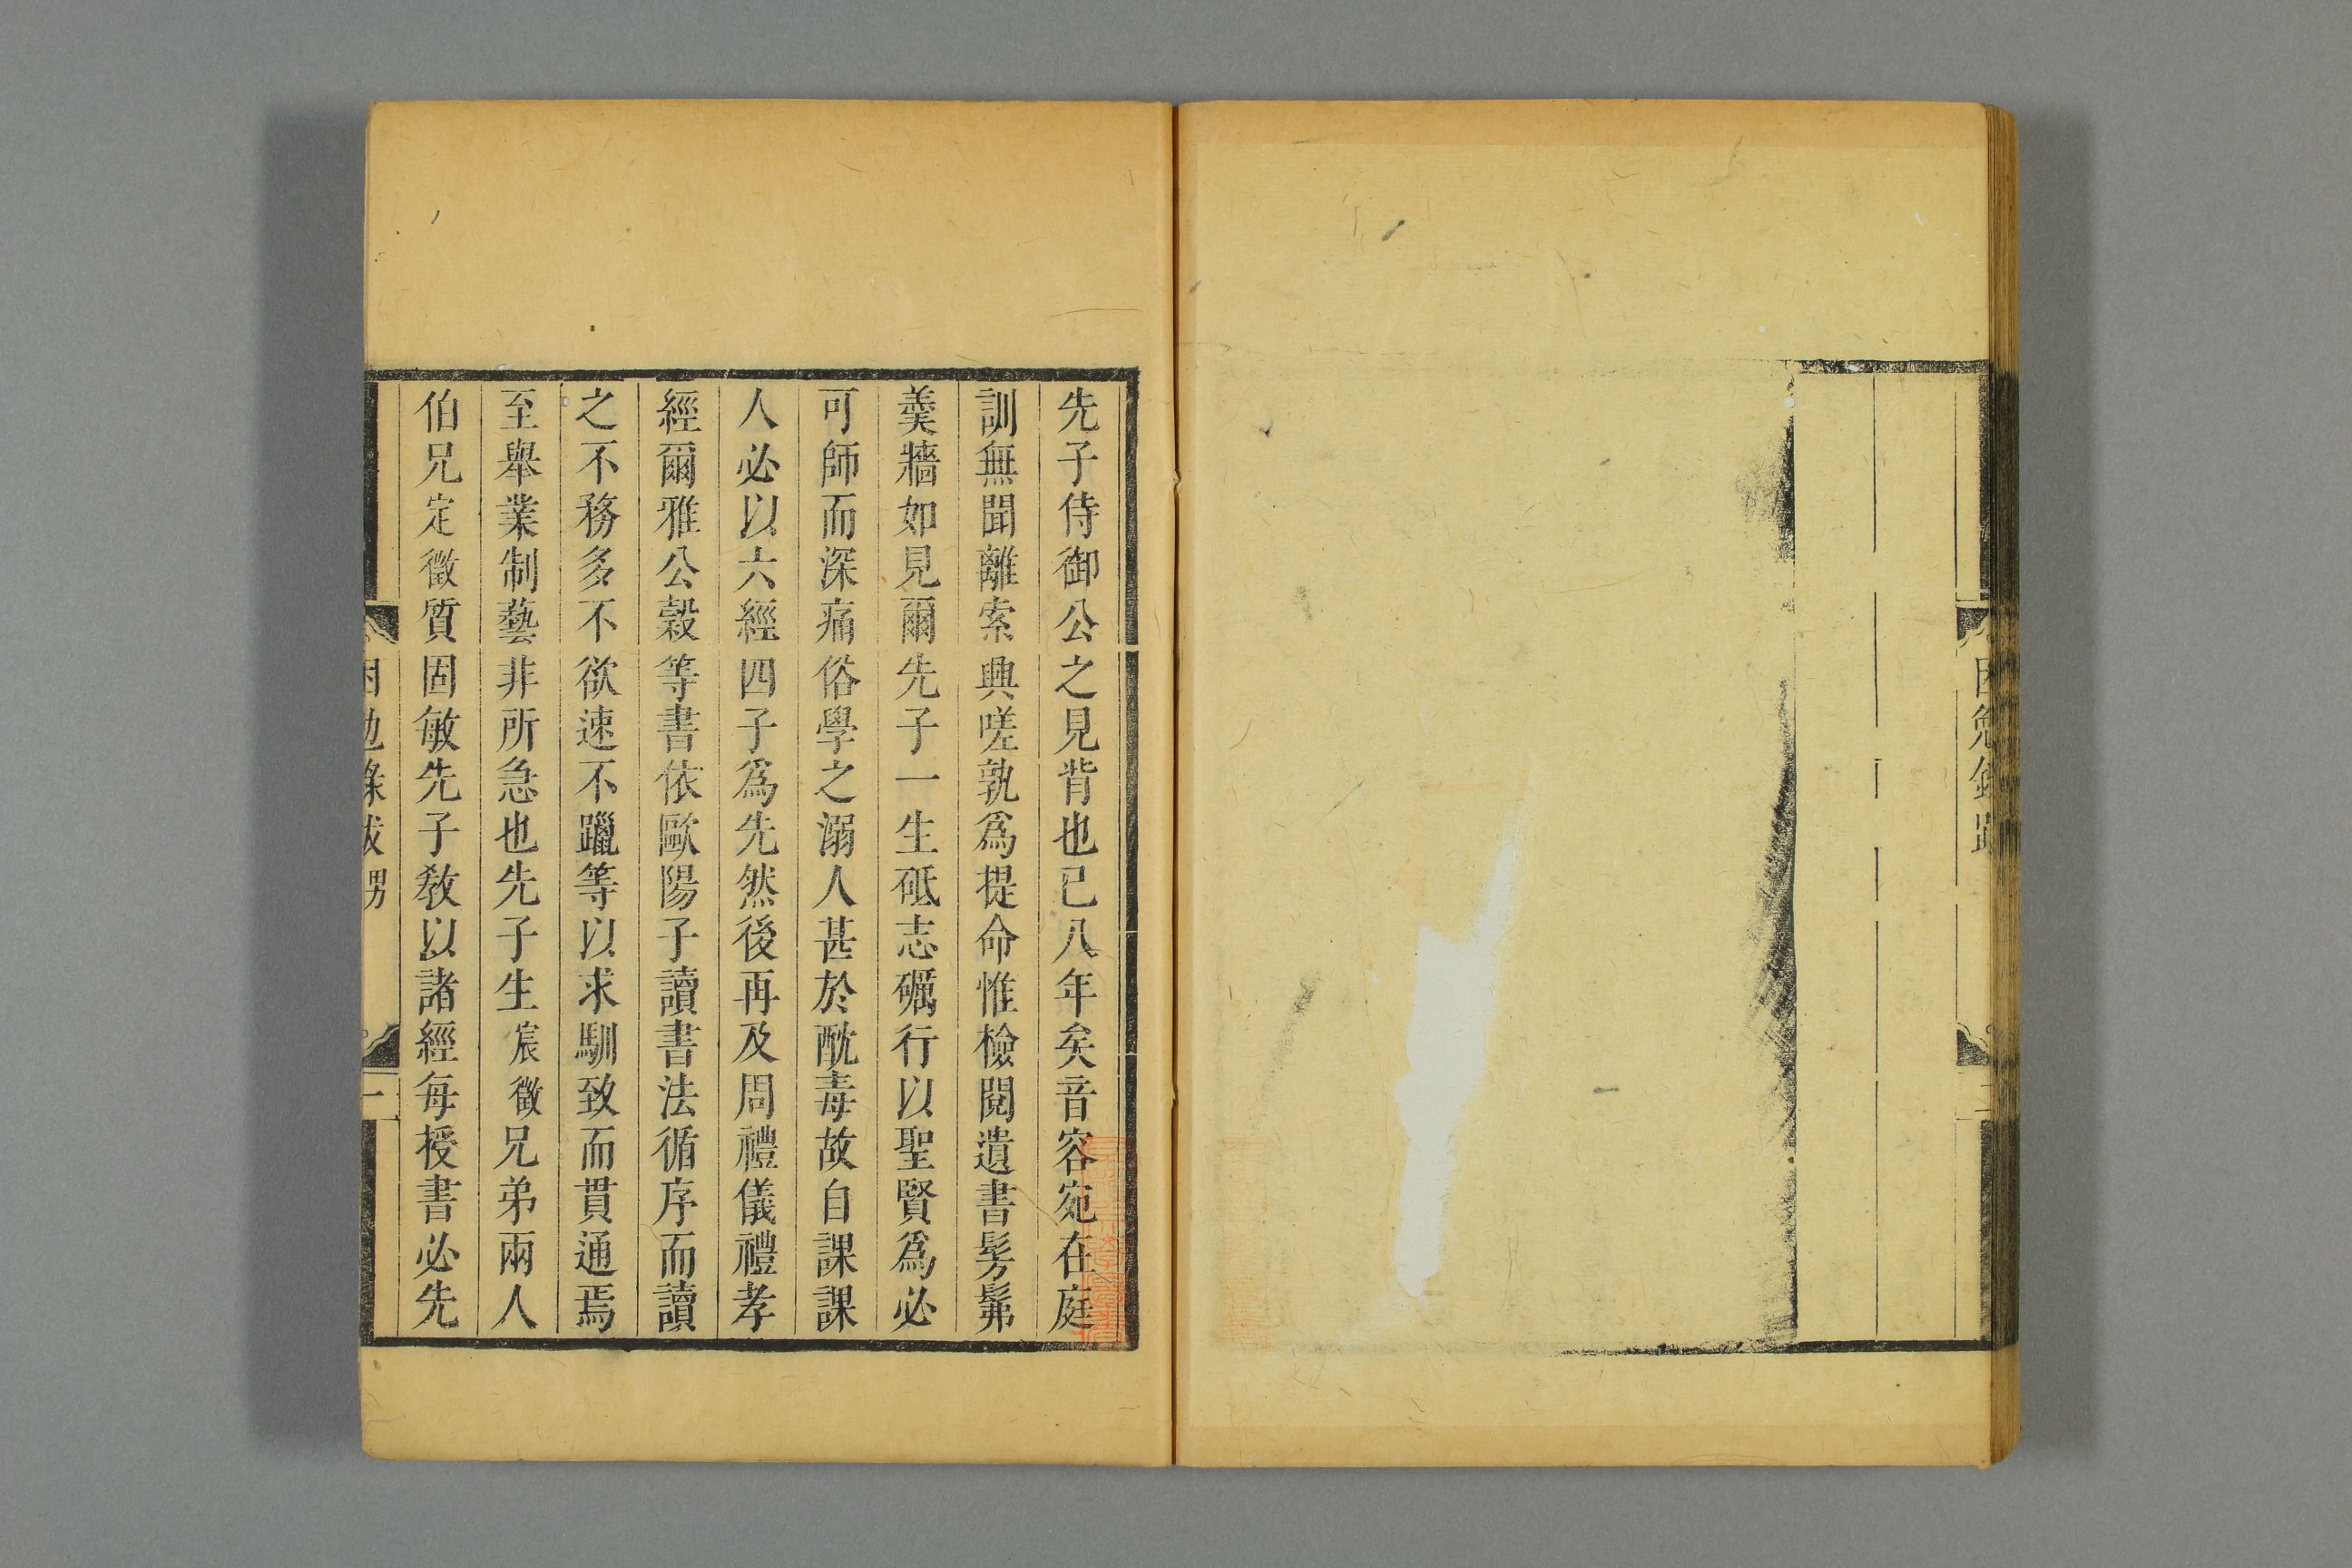 困勉錄跋
先子侍御公之見背也已八年矣音容宛在庭
訓無聞離索興嗟孰爲提命惟檢閱遺書髣髴
羹牆如見爾先子一生砥志礪行以聖賢爲必
可師而深痛俗學之溺人甚於酖毒故自課課
人必以六經四子爲先然後再及周禮儀禮孝
經爾雅公穀等書依歐陽子讀書法循序而讀
之不務多不欲速不躐等以求馴致而貫通焉
至舉業制藝非所急也先子生宸徵兄弟兩人
伯兄定徵質固敏先子教以諸經每授書必先
困勉錄跋 男 一